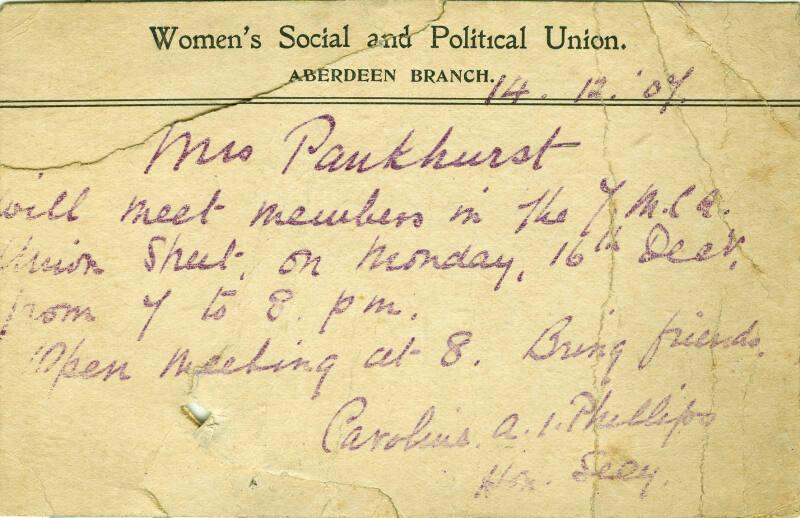 Women's Social and Political Union.
ABERDEEN BRANCH.
14. 12. '07.
Mrs Pankhurst
will meet members in the Y.M.C.A.
Union Street, on Monday, 16th Decr,
from 7 to 8. p m.
Open meeting at 8. Bring friends.
Caroline. A. I. Phillips
Hon. Secy.